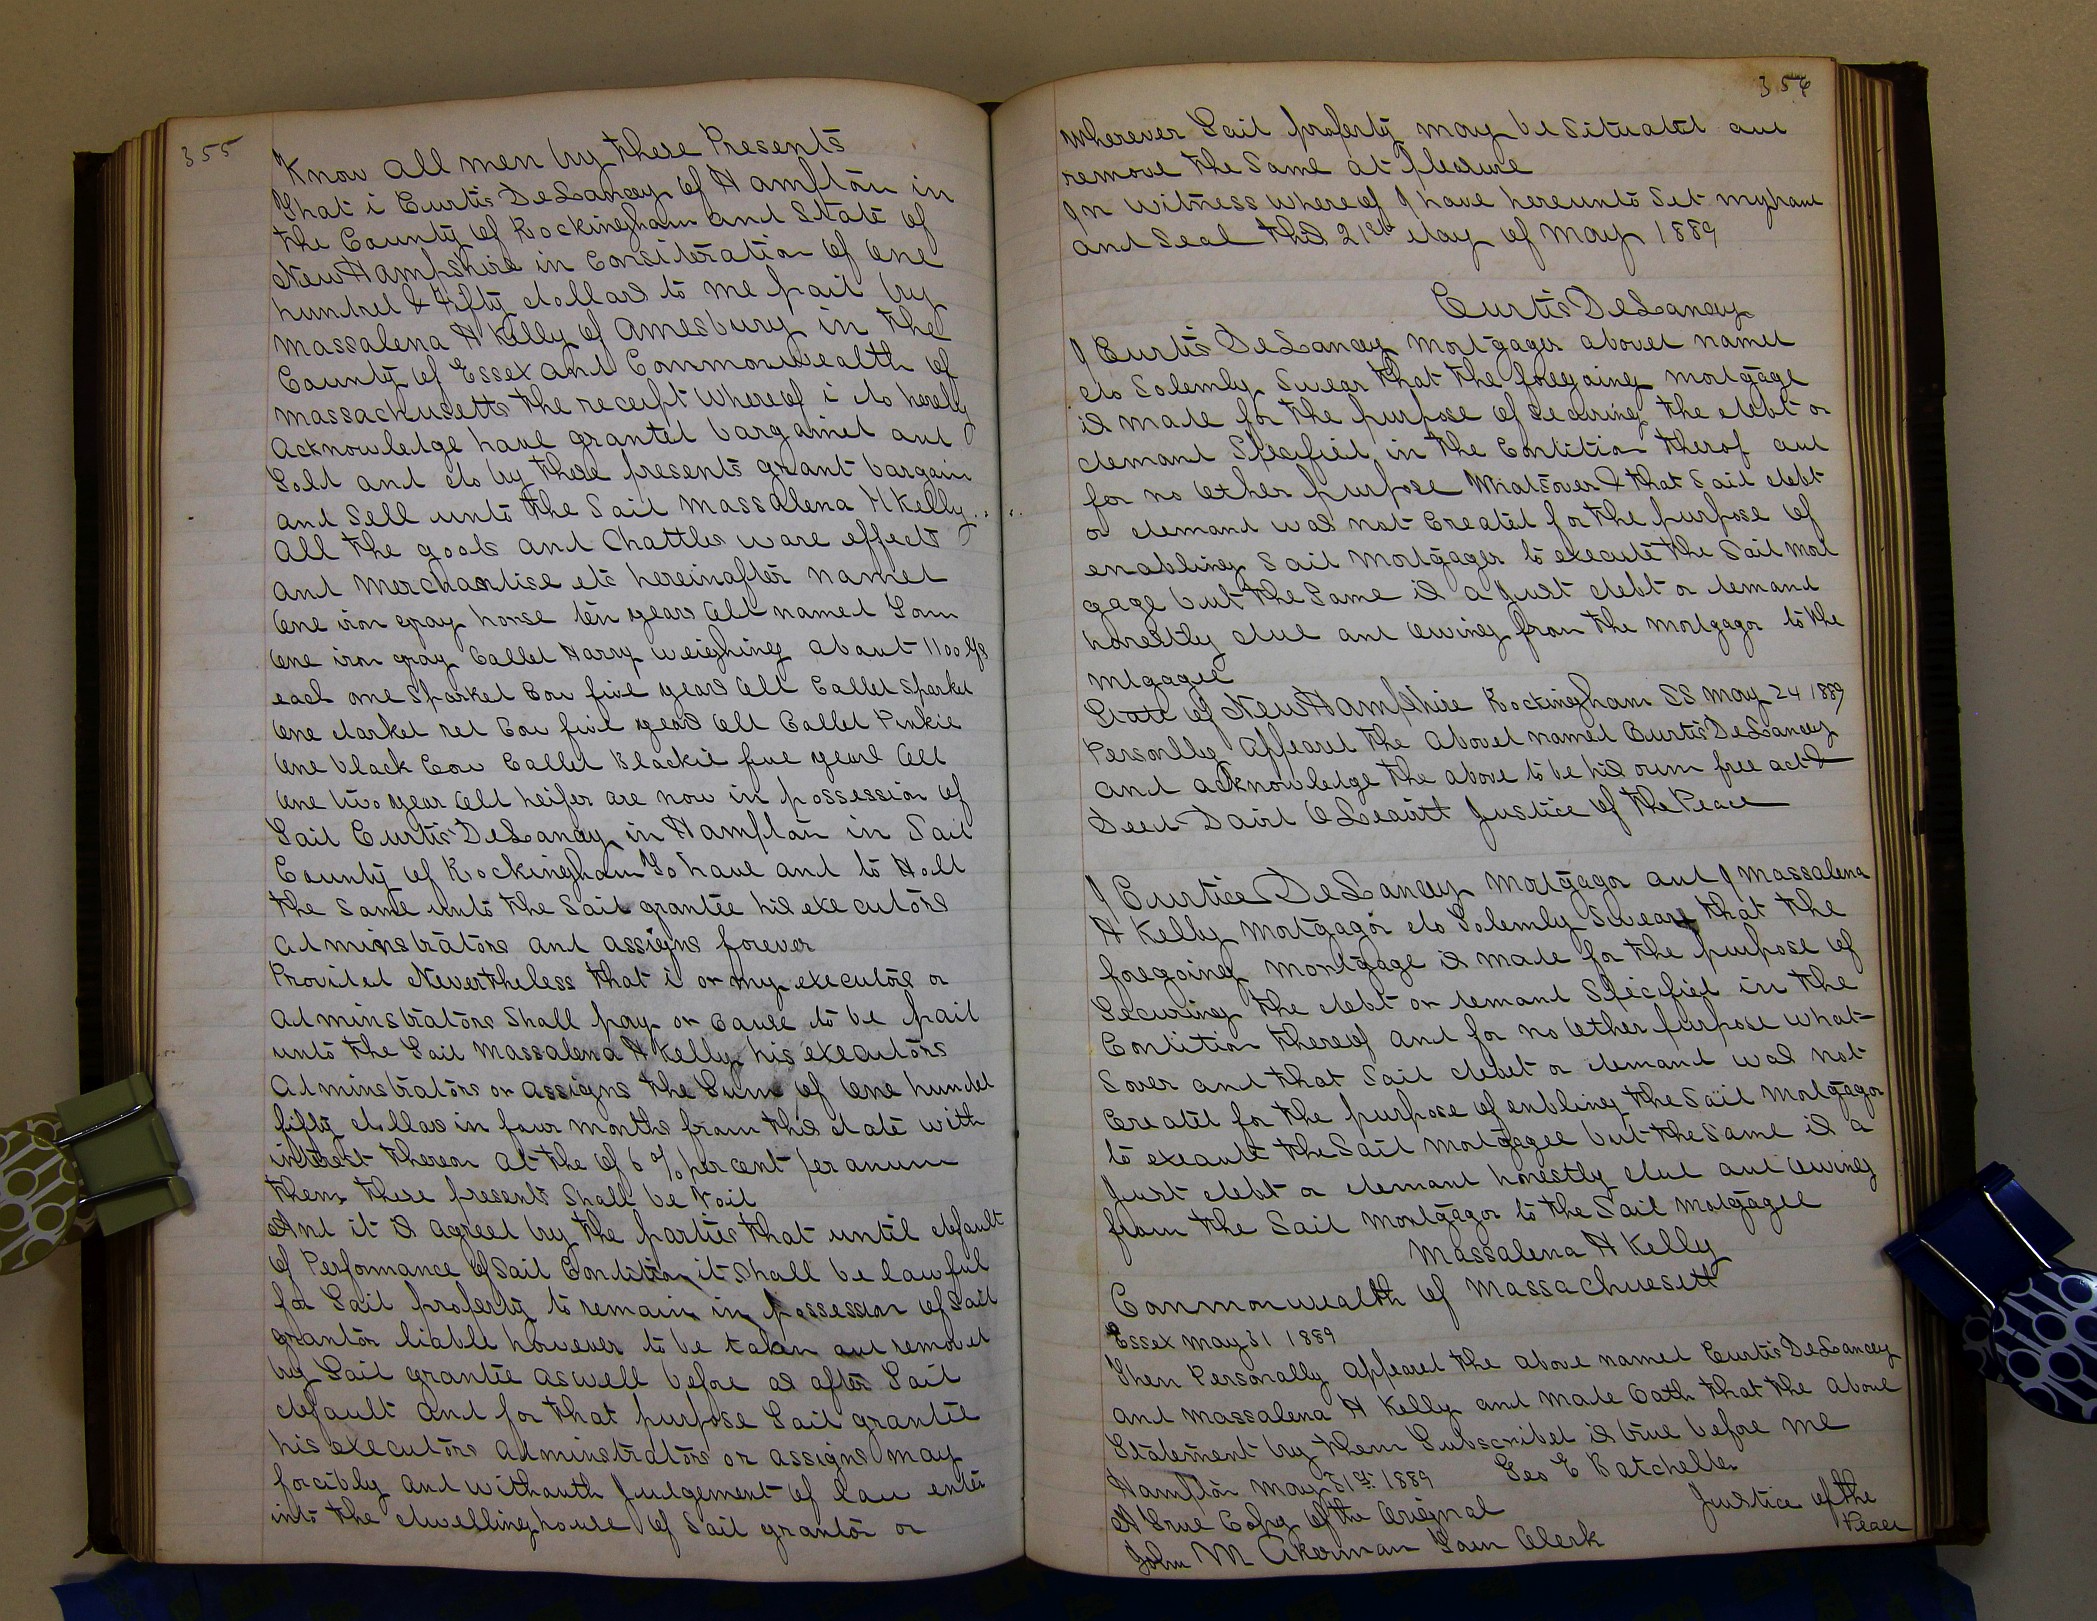 355
Know all men by these Presents
That i Curtis DeLancey of Hampton in
the County of Rockingham and State of
New Hampshire in Consideration of One
hundred & fifty dollars to me paid by
Massalena H Kelly of Amesbury in the
County of Essex and Commonwealth of
Massachusetts the receipt whereof i do hereby
Acknowledge have granted bargained and
Sold and do by these presents grant bargain
and Sell unto the Said Massalena H Kelly
All the goods and Chattles ware effects
and Merchantise etc hereinafter named
One iron gray horse ten years Old named Tom
One iron gray Called Harry weighing about 1100 lbs
each one Sparked Cow five years Old Called Sparked
One darked red Cow five years Old Called Pinkie
One black Cow Called Blackie five years Old
One two year Old heifer are now in possession of
Said Curtis DeLancey in Hampton in Said
County of Rockingham To have and to Hold
the Same unto the Said grantee his executors
adminstrators and assigns forever
Provided Nevertheless that i or my executors or
adminstrators Shall pay or Cause to be paid
unto the Said Massalena H Kelly his executors
Adminstrators or assigns the Sum of One hundred
fifty dollars in four months from this date with
interest thereon at the of 6 % per cent per anum
then these presents Shall be Void
And it is agreed by the parties that until default
of Performance of Said Condition it Shall be lawful
for Said property to remain in possession of Said
grantor liable however to be taken and removed
by Said grantee aswell before as after Said
default and for that purpose Said grantee
his executors adminstrators or assigns may
forcibly and withouth Judgement of law enter
into the dwellinghouse of Said grantor or
356
Wherever Said property may be Situated and
remove the Same at Pleasure
In Witness Whereof I have hereunto Set my hand
and Seal this 21st day of May 1889
Curtis DeLancey
I Curtis DeLancey Mortgager aboved named
do Solemly Swear that the foregoing mortgage
is made for the purpose of Securing the debt or
demand Specified in the Condition therof and
for no Other purpose Whatsover & that Said debt
or demand was not Created for the purpose of
enabling Said Mortgager to execute the Said Mort
gage but the Same is a Just debt or demand
honestly due and Owing from the Mortgagor to the
Mtgagee
State of New Hampshire Rockingham SS May 24 1889
Personlly Appeared the Aboved named Curtis DeLancey
and acknowledge the above to be his own free act &
Deed David O Leavitt Justice of the Peace
I Curtice DeLancey Mortgagor and I Massalena
H Kelly Mortgagor do Solemly Swear that the
foregoing Mortgage is made for the purpose of
Securing the debt or demand Specified in the
Condition thereof and for no Other purpose what-
Sover and that Said debt or demand was not
Created for the purpose of enbling the Said Mortgagor
to execute the Said Mortgagee but the Same is a
Just debt or demand honestly due and Owing
from the Said Mortgagor to the Said Mortgagee
Massalena H Kelly
Commonwealth of Massachuesett
Essex May 31 1889
Then Personally appeared the above named Curtis DeLancey
and Massalena H Kelly and made Oath that the above
Statement by them Subscribed is true before me
Hampton May 31st 1889 Geo E Batcheller
Justice of the
Peace
A True Copy of the Orignal
John M Akerman Town Clerk